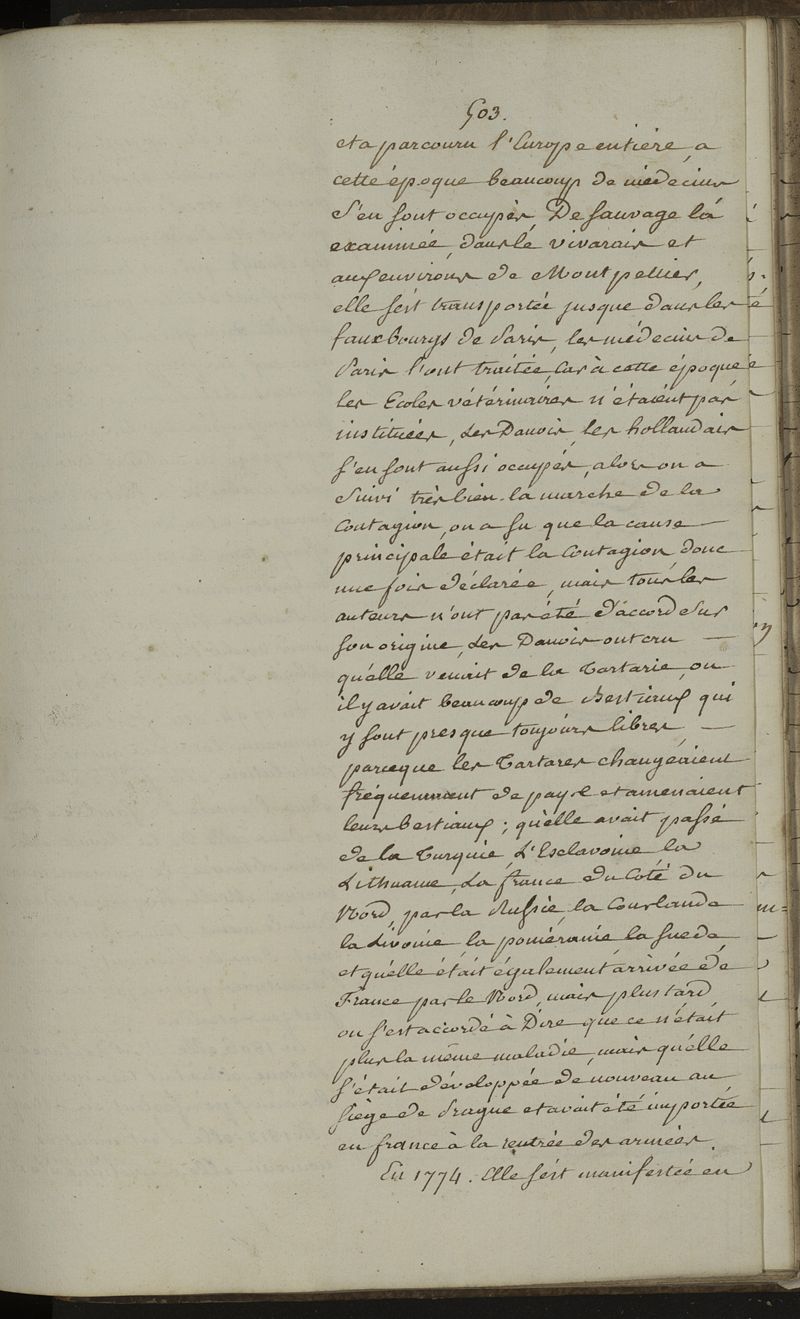 503.
et a parcouru l'Europe entière, a
cette époque beaucoup de médecins
s'en sont occupés, De sauvage l'a
examinée, dans le vivarais et
aux environs de Montpellier,
elle s'ést transportée jusque dans les
fauxbourgs de Paris, les médecins de
Paris l'ont traitée, Car à cette époque
les Ecoles vétérinaires n'étaient pas
instituées, Les Danois, les hollandais
s'en sont aussi occupés, alors on a
Suivi très bien la marche de la
Contagion, on a su que la cause —
principale était la Contagion, donc
une fois déclarée, mais tous les
auteurs n'ont pas été d'accord Sur
son origine, Les Danois ont cru —
qu'elle venait de la Tartarie, ou
il y avait beaucoup de Bestiaux qui
y sont presque toujours libres, —
parceque les Tartares changeaient
fréquemment de pays et amenaient
leurs bestiaux ; qu'elle avait passé
de la Turquie, L'Esclavonie la
Lithuanie, La france du Coté du
Nord, par la Russie, la Courlande
la Livonie la poméranie, la Suede,
et qu'elle était également arrivée de
France par le Nord, mais plus tard
on s'est accordé à Dire que ce n'était
plus la même maladie, mais qu'elle
s'était développée de nouveau au
siège de Prague et avait été importée
en france à la rentrée des armées.
En 1774. Elle s'ést manifestée en